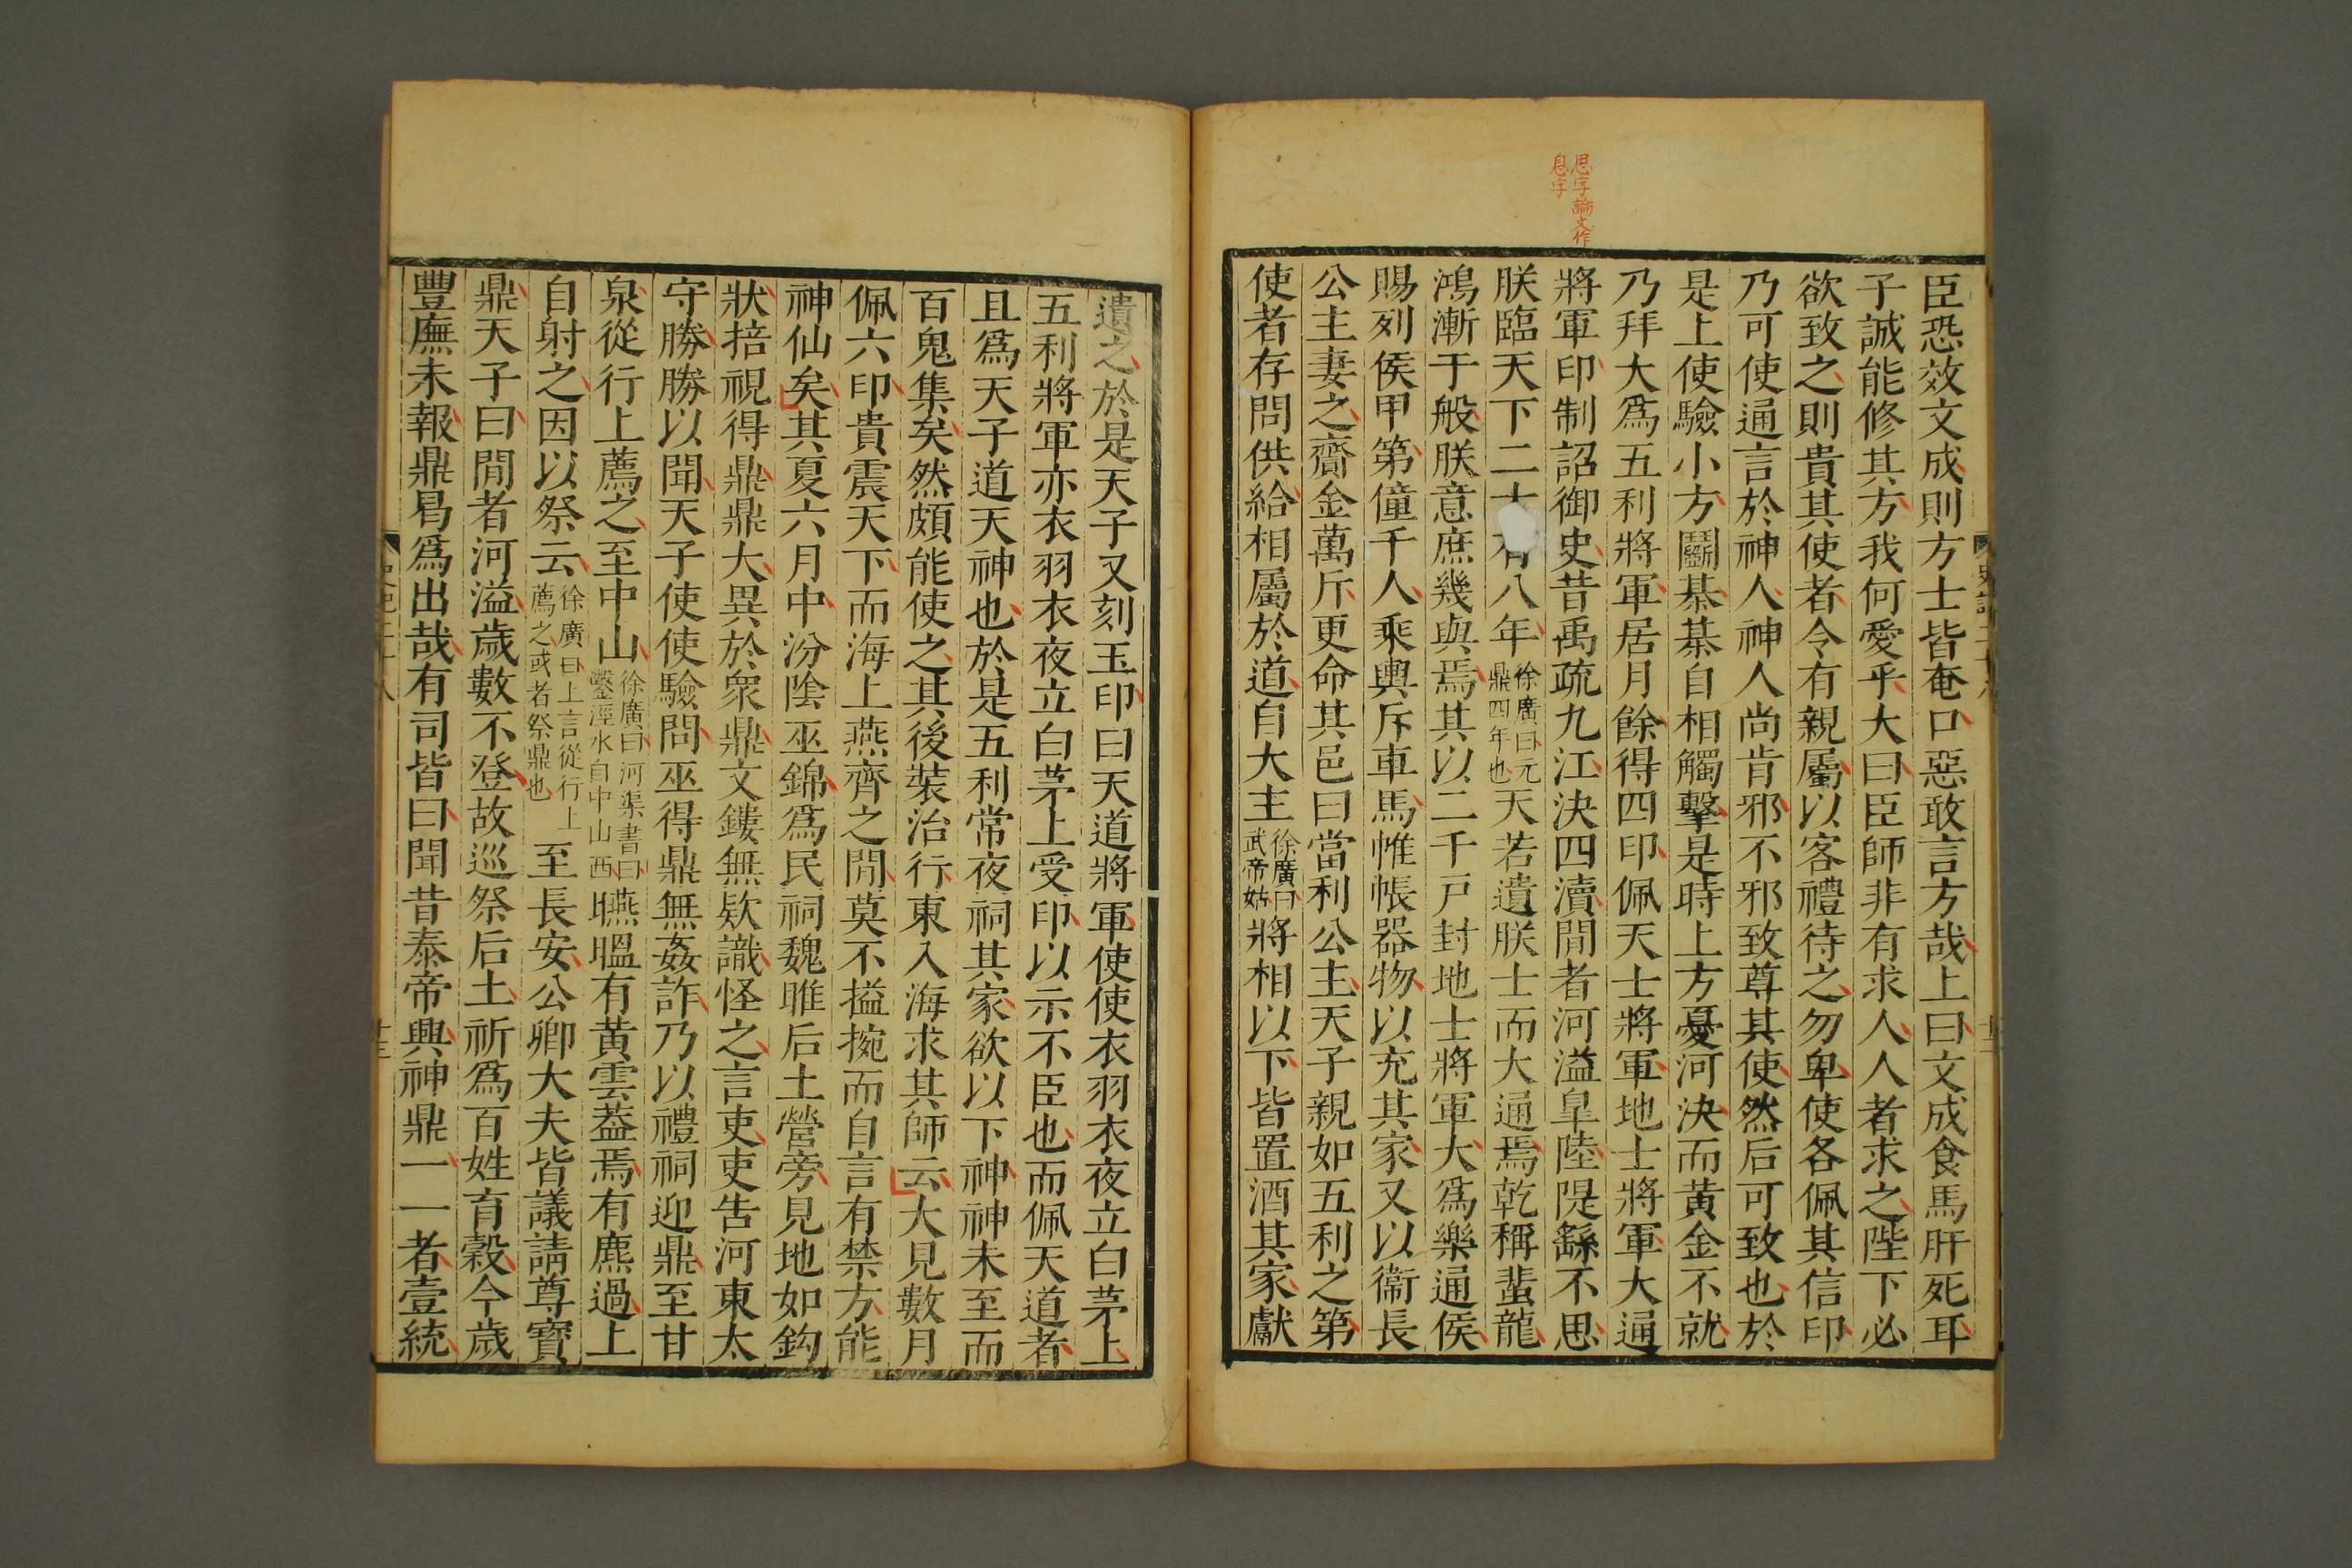 思字論文作
息字
臣恐效文成則方士皆奄口惡敢言方哉上曰文成食馬肝死耳
子誠能修其方我何愛乎大曰臣師非有求人人者求之陛下必
欲致之則貴其使者令有親屬以客禮待之勿卑使各佩其信印
乃可使通言於神人神人尚肯邪不邪致尊其使然后可致也於
是上使驗小方鬬棊棊自相觸擊是時上方憂河決而黄金不就
乃拜大爲五利將軍居月餘得四印佩天士將軍地士將軍大通
將軍印制詔御史昔禹疏九江決四瀆閒者河溢臯陸隄繇不思
朕臨天下二十有八年徐廣曰元鼎四年也天若遺朕士而大通焉乾稱蜚龍
鴻漸于般朕意庶幾與焉其以二千戸封地士將軍大爲樂通侯
賜列侯甲第僮千人乘輿斥車馬帷帳器物以充其家又以衞長
公主妻之齎金萬斤更命其邑曰當利公主天子親如五利之第
使者存問供給相屬於道自大主徐廣曰武帝姑將相以下皆置酒其家獻
遺之於是天子又刻玉印曰天道將軍使使衣羽衣夜立白茅上
五利將軍亦衣羽衣夜立白茅上受印以示不臣也而佩天道者
且爲天子道天神也於是五利常夜祠其家欲以下神神未至而
百鬼集矣然頗能使之其後裝治行東入海求其師云大見數月
佩六印貴震天下而海上燕齊之閒莫不搤捥而自言有禁方能
神仙矣其夏六月中汾陰巫錦爲民祠魏脽后土營旁見地如鈎
狀掊視得鼎鼎大異於衆鼎文鏤無款識怪之言吏吏告河東太
守勝勝以聞天子使使驗問巫得鼎無姦詐乃以禮祠迎鼎至甘
泉從行上薦之至中山徐廣曰河渠書曰鑿涇水自中山西曣㬈有黄雲蓋焉有麃過上
自射之因以祭云徐廣曰上言從行上薦之或者祭鼎也至長安公卿大夫皆議請尊寶
鼎天子曰閒者河溢歲數不登故巡祭后土祈爲百姓育穀今歲
豐廡未報鼎曷爲出哉有司皆曰聞昔泰帝興神鼎一一者壹統